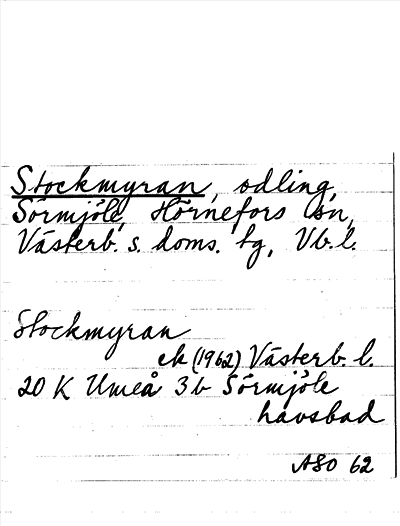 Stockmyran, odling,
Sörmjöle, Hörnefors sn,
Västerb. s. doms. tg, Vb. l.
Stockmyran
ek (1962) Västerb. l.
20 K Umeå 3b Sörmjöle
havsbad
ASO 62